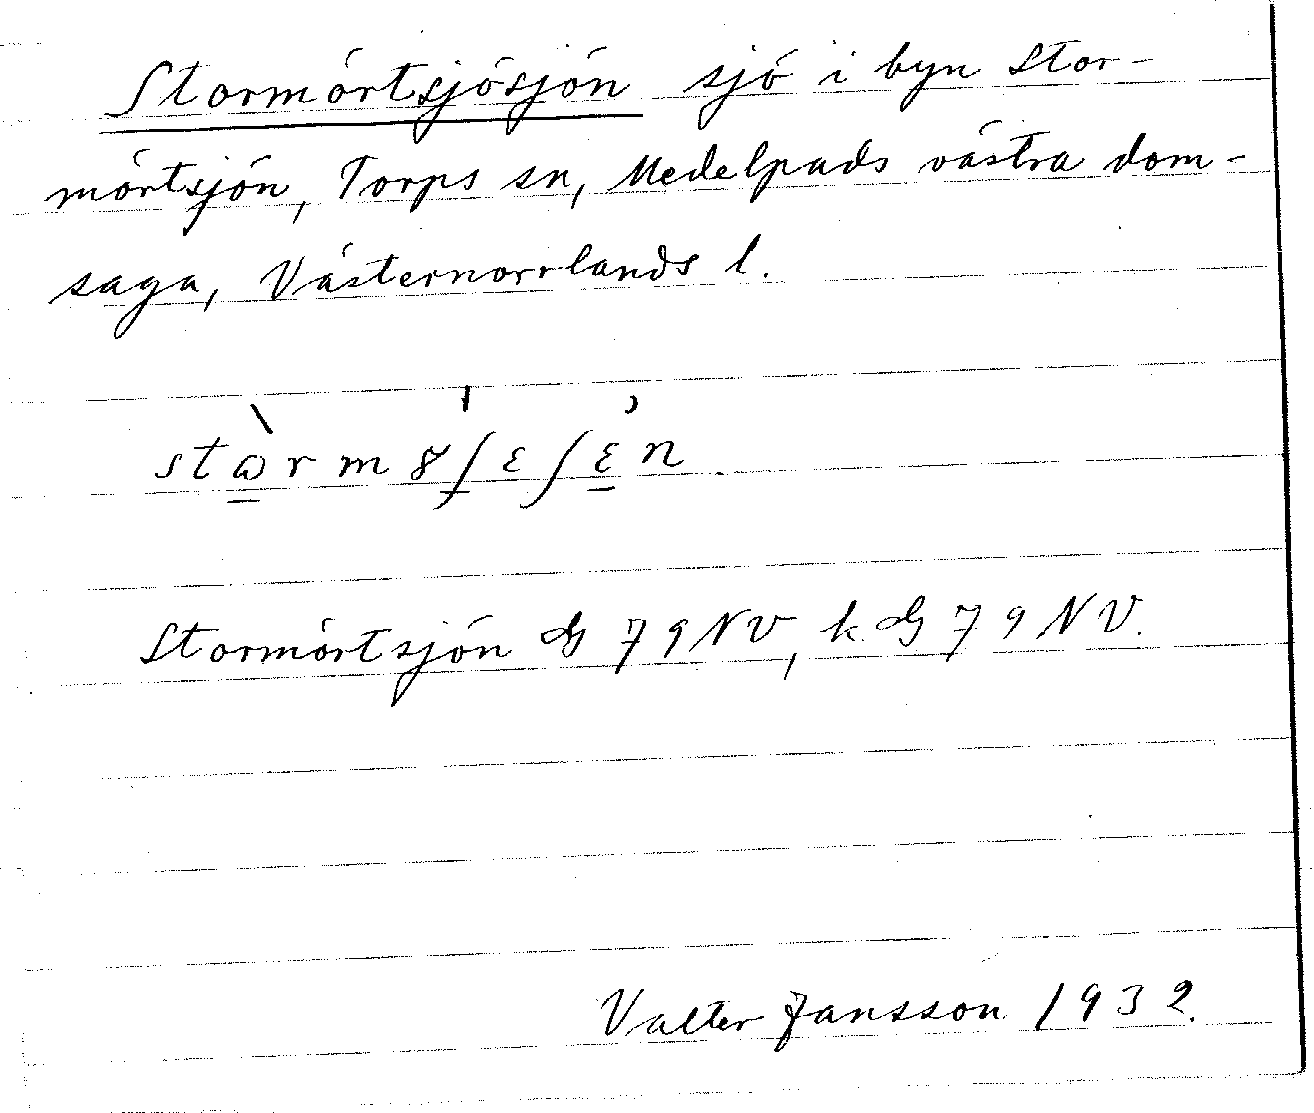 Stormörtsjösjön sjö i byn Stor-
mörtsjön, Torps sn, Medelpads västra dom-
saga, Västernorrlands l.
Stormörtsjön G 79 NV, k. G 79 NV.
Valter Jansson 1932.